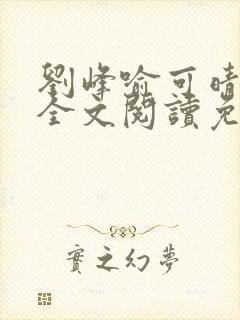 劉峰喻可晴
全文閱讀免
實之幻夢